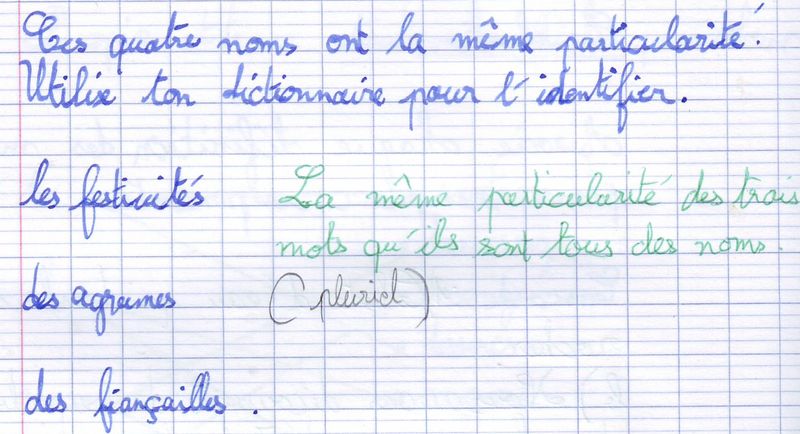 Ces quatre noms ont la même particularité.
Utilise ton dictionnaire pour l'identifier.
les festivités La même particularité des trois
mots qu'ils sont tous des noms.
des agrumes (pluriel)
des fiançailles.